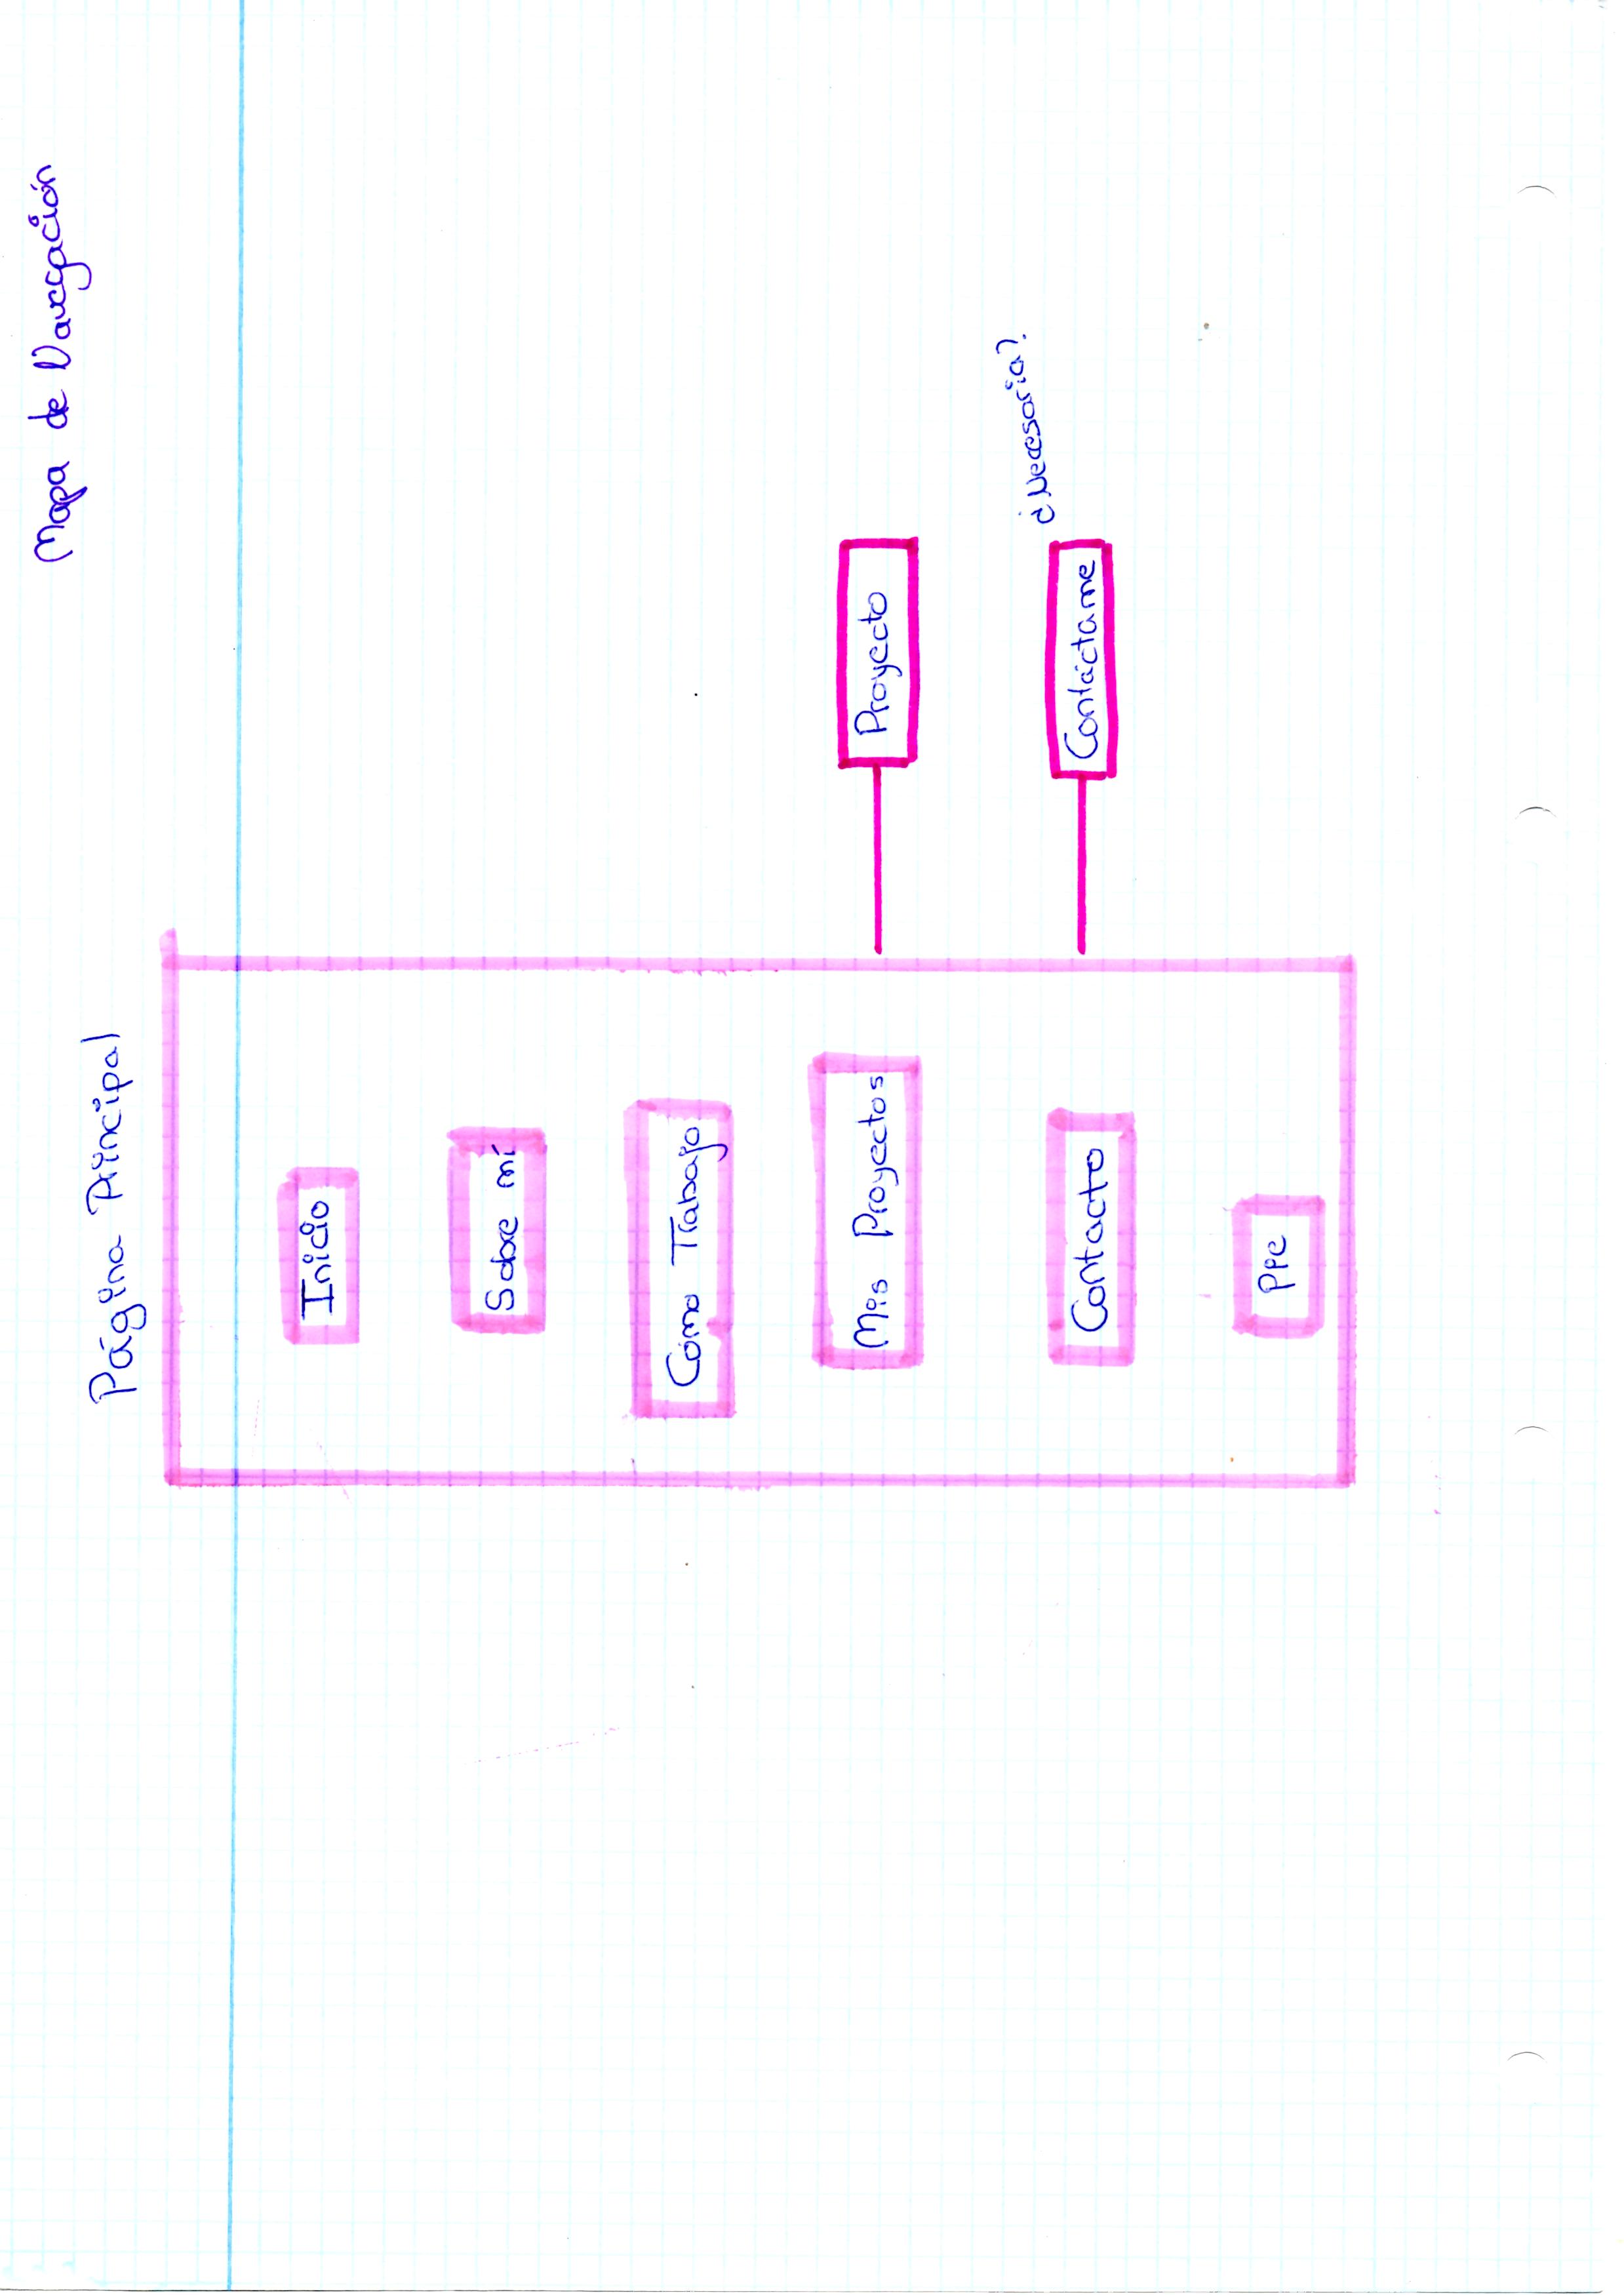 Mapa de Navegación
Página Principal
Inicio
Sobre mí
Cómo Trabajo
Mis Proyectos
Proyecto
¿Necesaria?
Contacto
Contáctame
Pie